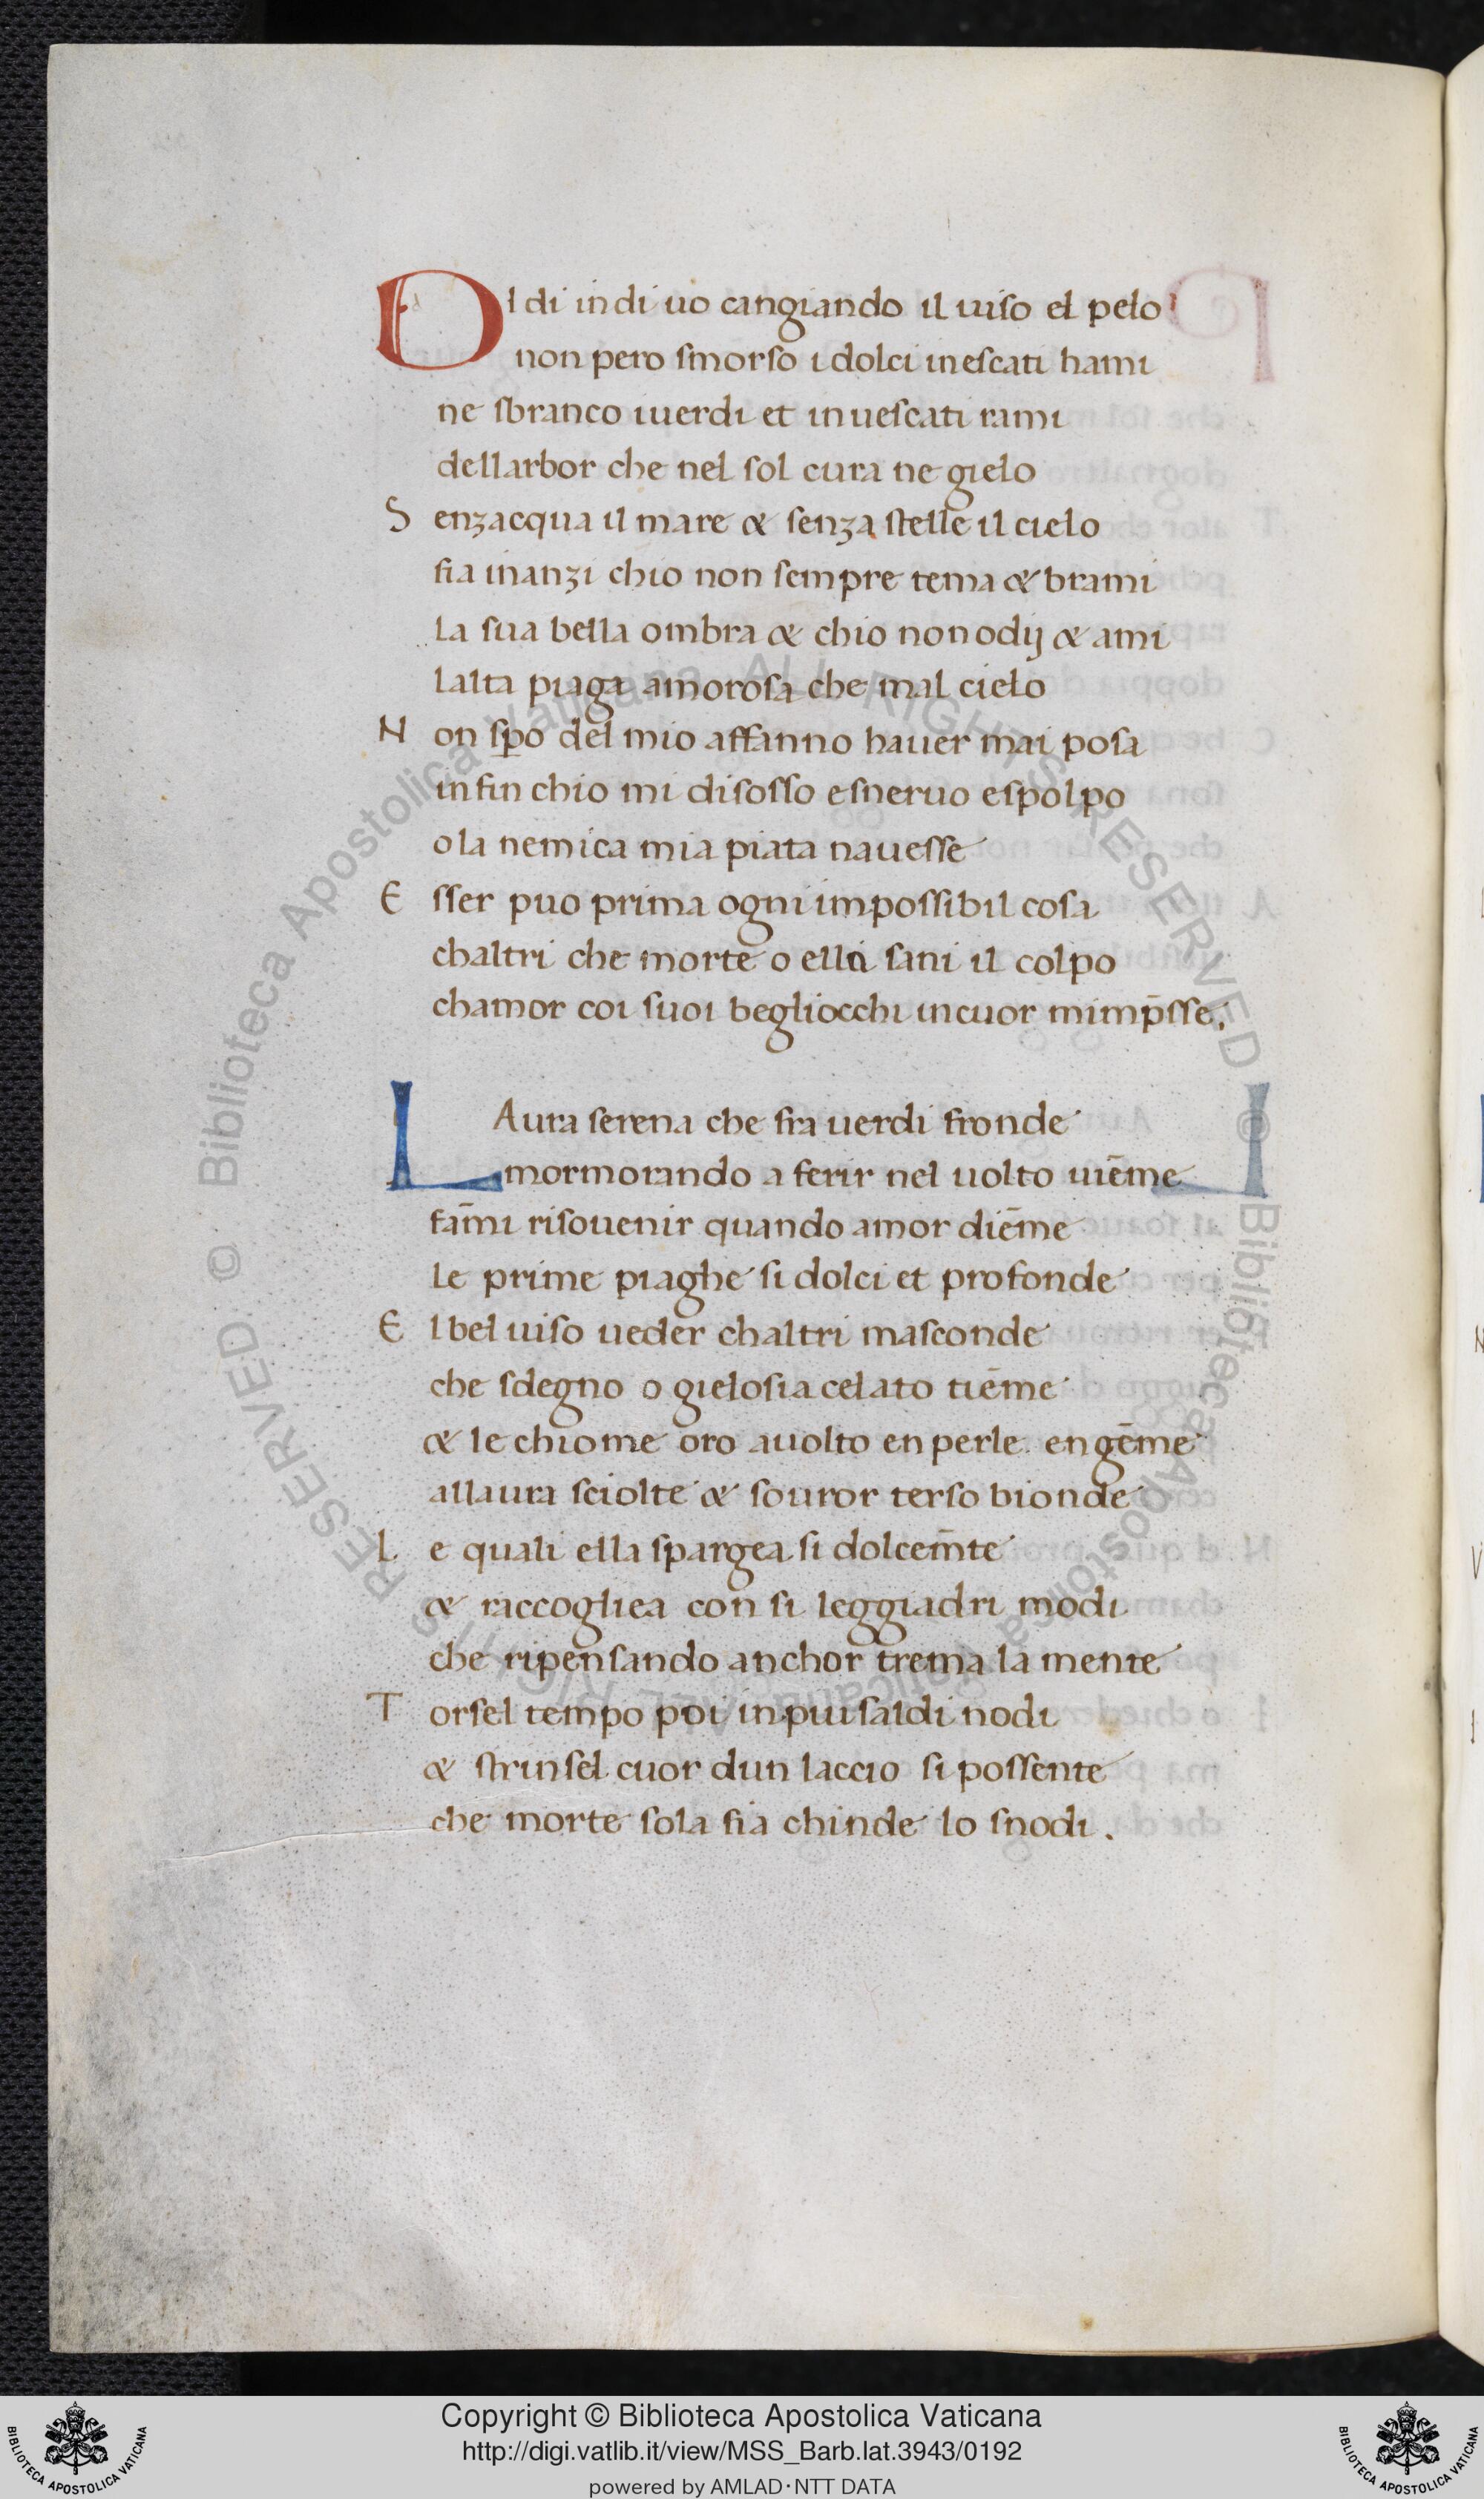 DI di indi uo cangiando il uiso el pelo
non pero smorso i dolci inescati hami
ne sbranco iuerdi et inuescati rami
dellarbor che nel sol cura ne gielo
S enzacqua il mare & senza stelle il cielo
fia inanzi chio non sempre tema & brami
La sua bella ombra & chio non odij & ami
lalta piaga amorosa che mal cielo
N on sꝑo del mio affanno hauer mai posa
infin chio mi disosso esneruo espolpo
o la nemica mia piata nauesse
E sser puo prima ogni impossibil cosa
chaltri che morte o ella sani il colpo
chamor coi suoi begliocchi incuor mimp̄sse.
LAura serena che fra uerdi fronde
mormorando a ferir nel uolto uiēme
fam̄i risouenir quando amor diēme
le prime piaghe si dolci et profonde
E l bel uiso ueder chaltri masconde
che sdegno o gielosia celato tiēme
& le chiome oro auolto en perle engēme
allaura sciolte & souror terso bionde
L e quali ella spargea si dolcem̄te
& raccogliea con si leggiadri modi
che ripensando anchor trema la mente
T orsel tempo poi in piu saldi nodi
& strinsel cuor dun laccio si possente
che morte sola fia chinde lo snodi.
Copyright © Biblioteca Apostolica Vaticana
http://digi.vatlib.it/view/MSS_Barb.lat.3943/0192
powered by AMLAD·NTT DATA
BIBLIOTECA APOSTOLICA VATICANA
BIBLIOTECA APOSTOLICA VATICANA